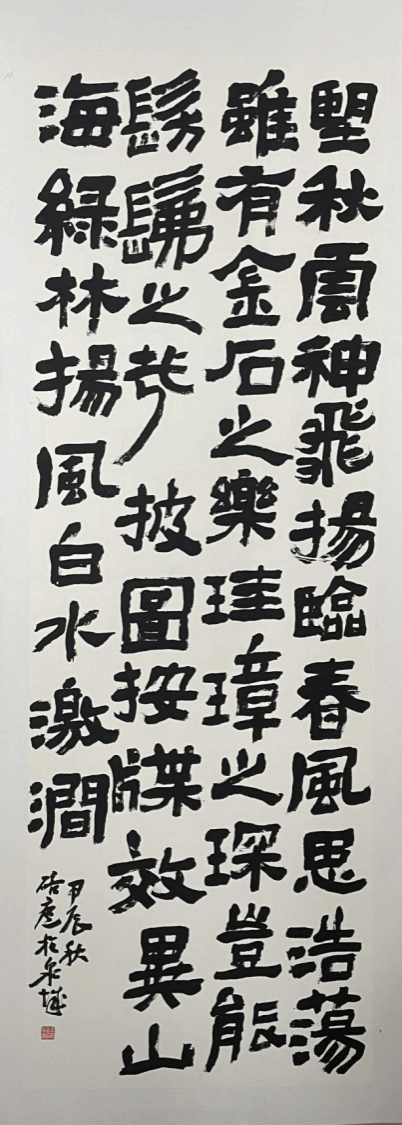 望秋雲神飛揚臨春風思浩蕩
雖有金石之樂珪璋之琛豈能
髣髴之哉披圖按牒效異山
海綠林揚風白水激澗
甲辰秋
於泉城